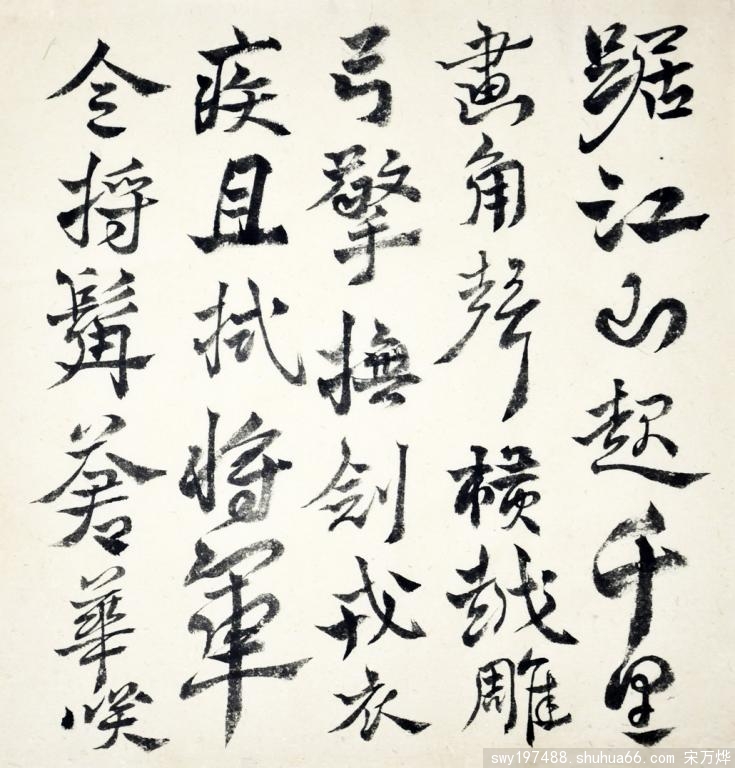 踞江山起千里
畫角聲橫越雕
弓擎撫劍戎衣
疾且拭將軍
令捋髯蒼華咲
swy197488.shuhua66.com 宋万烨